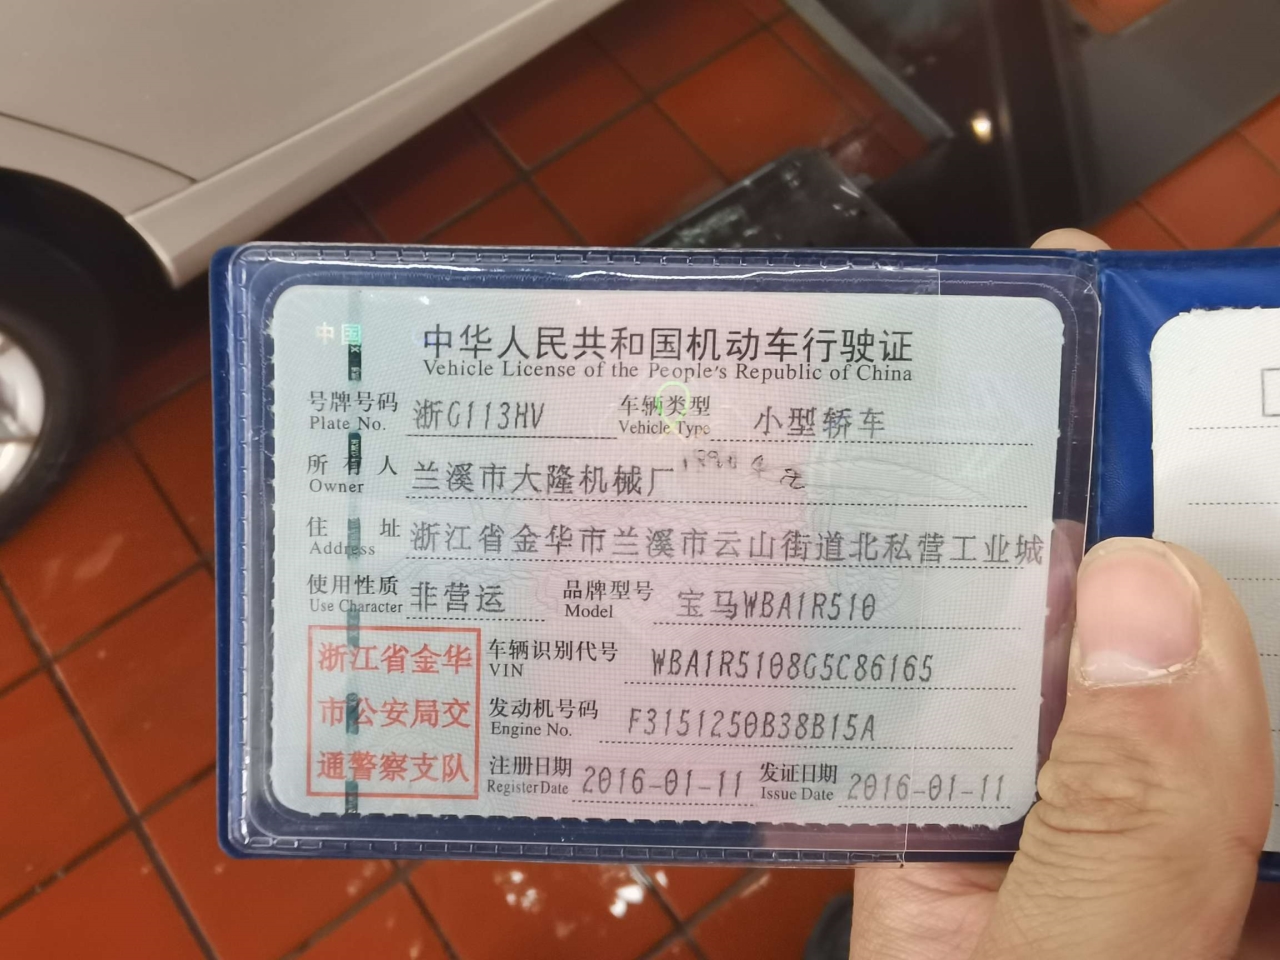 中国
中华人民共和国机动车行驶证
Vehicle License of the People's Republic of China
号牌号码 浙G113HV 车辆类型 小型轿车
Plate No. Vehicle Type
所有人 兰溪市大隆机械厂
Owner
住址 浙江省金华市兰溪市云山街道北私营工业城
Address
使用性质 非营运 品牌型号 宝马WBA1R510
Use Character Model
浙江省金华
市公安局交
通警察支队
车辆识别代号 WBA1R5108G5C86165
VIN
发动机号码 F3151250B38B15A
Engine No.
注册日期 2016-01-11 发证日期 2016-01-11
Register Date Issue Date